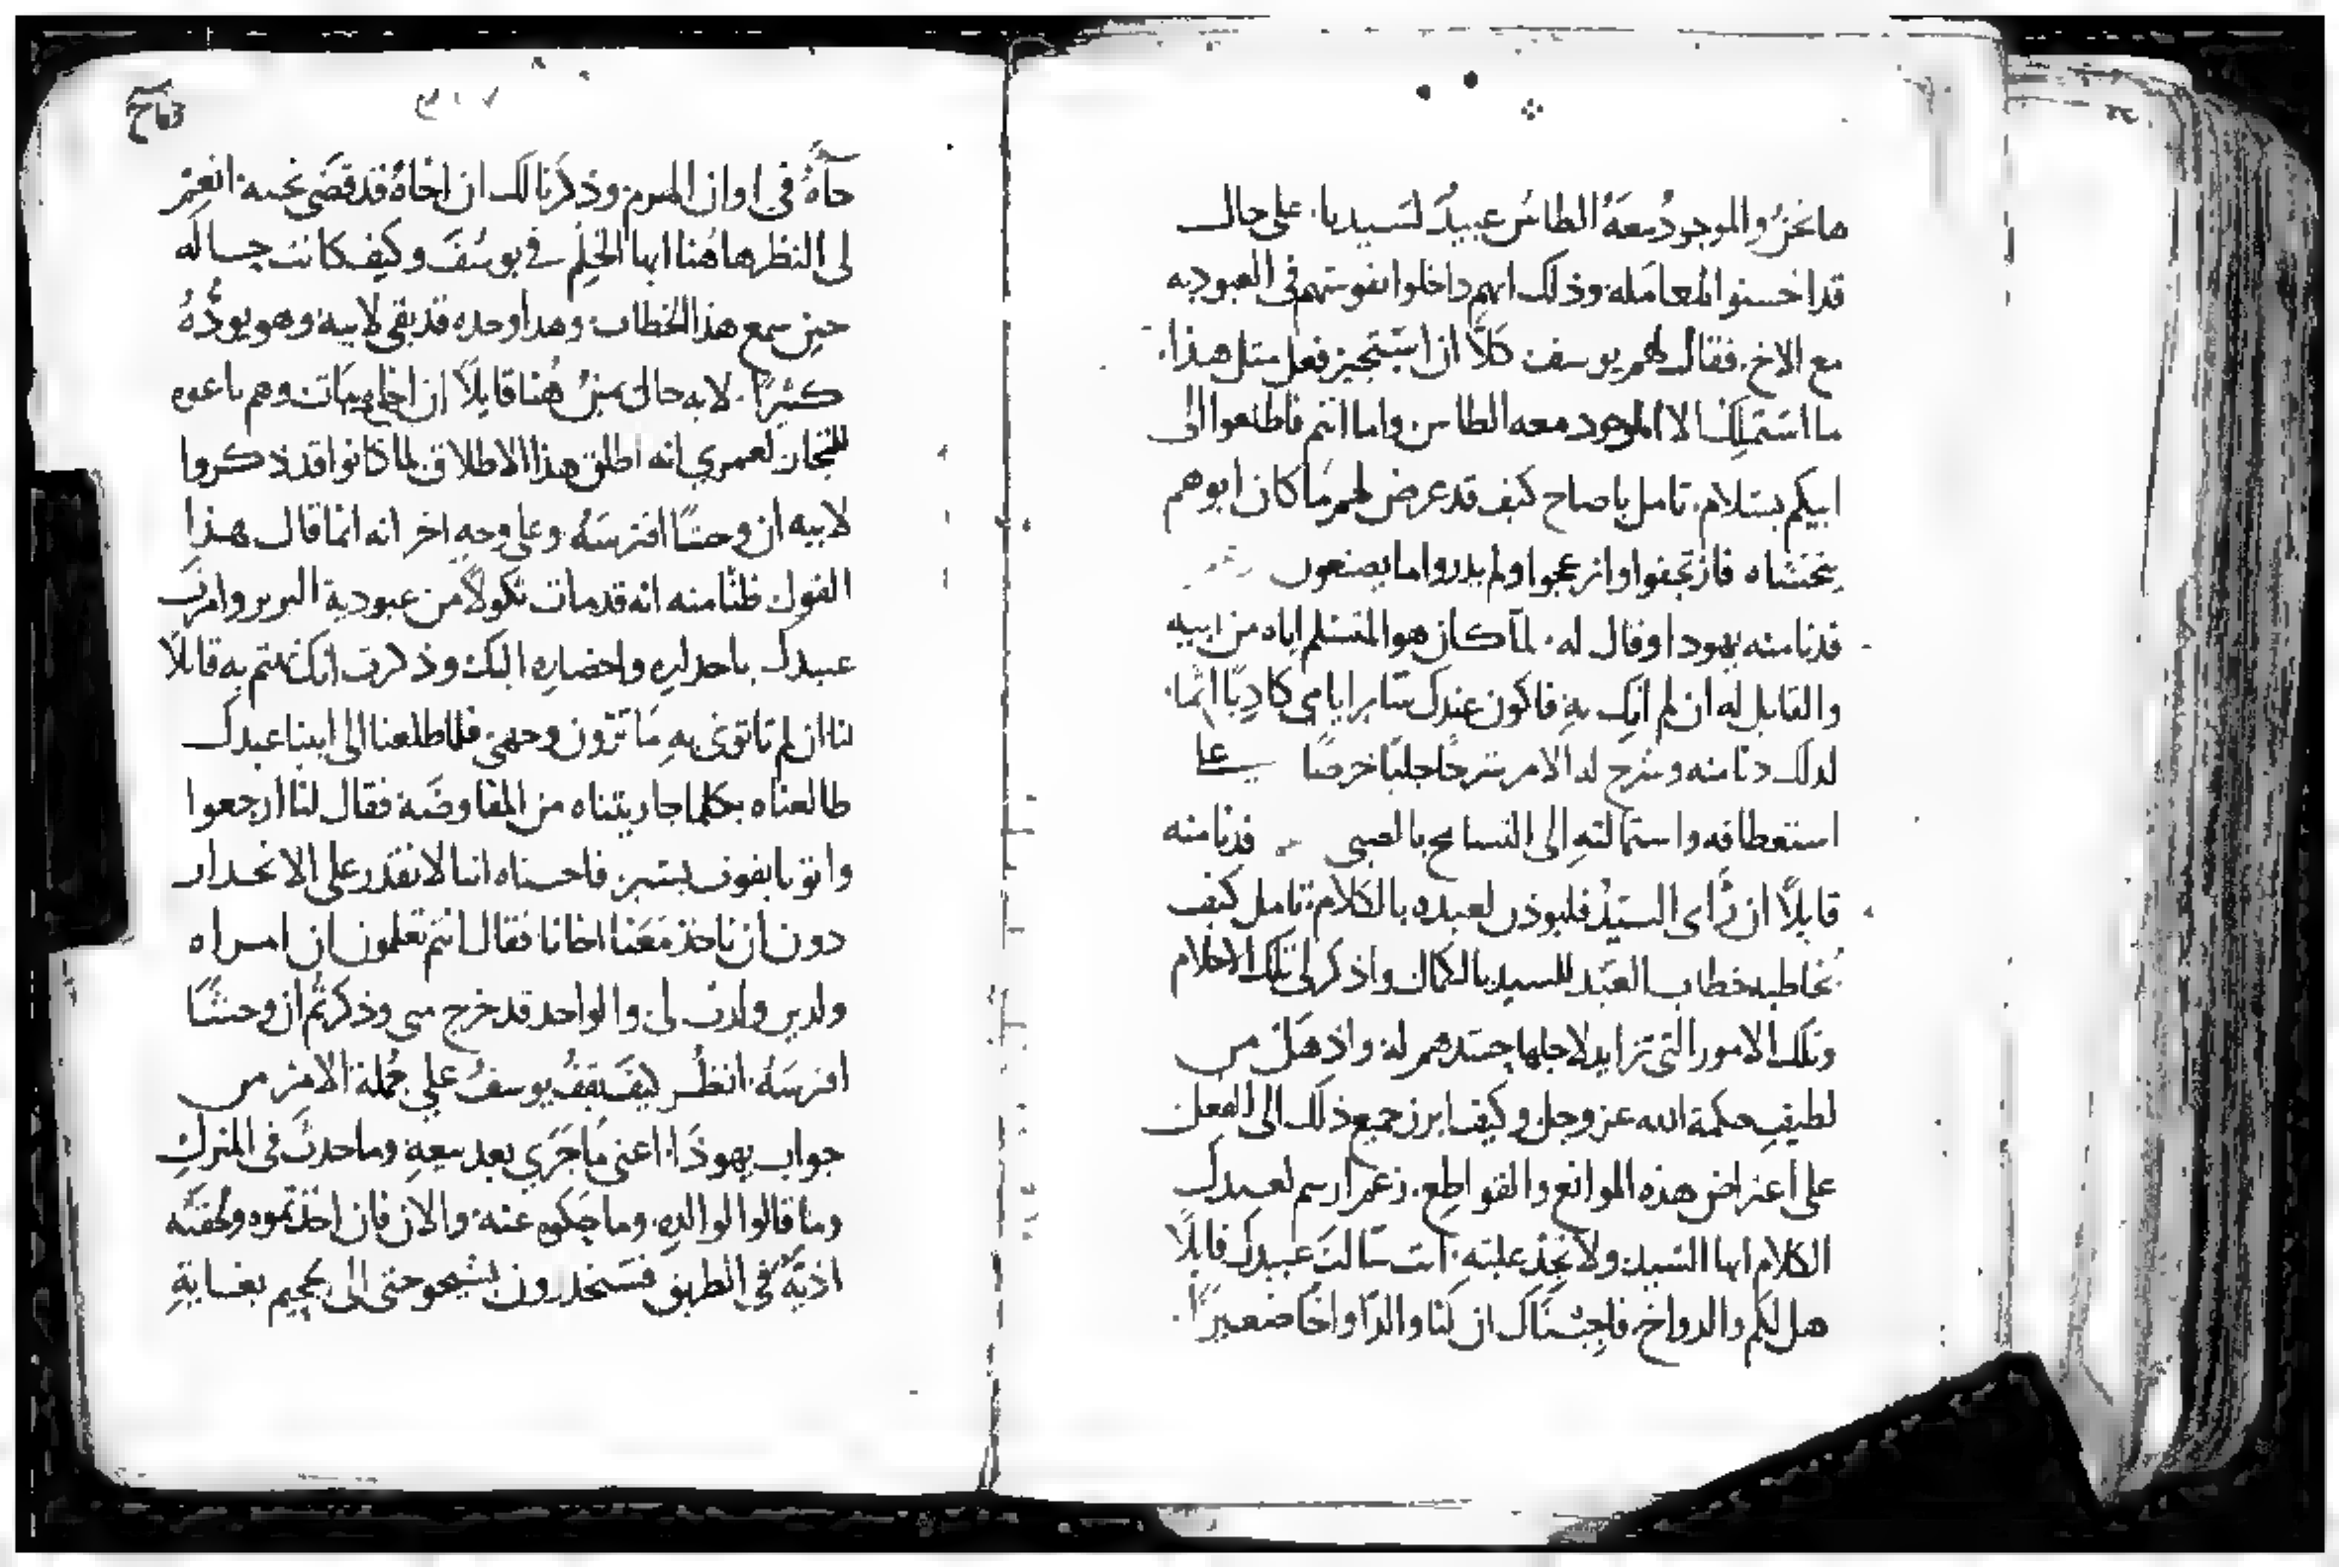 هانحن والموجود معه الطاس عبيد لسيدنا. على حال
قد احسنوا المعامله وذلك انهم داخلوا نفوسهم في العبوديه
مع الاخ. فقال لهم يوسف كلا ان استجيز فعل مثل هذا.
ما استملك الا الموجود معه الطاس واما انتم فاطلعوا الى
ابيكم بسلام. تامل ياصاح كيف قد عرض لهم ما كان ابوهم
يخشاه فارتجفوا وانزعجوا ولم يدروا ما يصنعون
فدنا منه يهودا وقال له. لما كان هو المتسلم اياه من ابيه
والقايل له ان لم اتيك به فاكون عندك ساير ايامي
لذلك دنا منه وشرح له الامر شرحا جليا حرصا على
استعطافه واستمالته الى التسامح بالصبي فدنا منه
قايلا ان راى السيد فليوذن لعبده بالكلام. تامل كيف
يخاطبه خطاب العبد للسيد بالكمال واذكر لي تلك الاحلام
وتلك الامور التي تزايد لاجلها حسدهم له واذهل من
لطيف حكمة الله عز وجل وكيف ابرز جميع ذلك الى الفعل
على اعتراض هذه الموانع والقواطع. زعم ارسم لعبدك
الكلام ايها السيد ولا تجد عليه. انت سالت عبيدك قايلا
هل لكم والد واخ. فاجبناك ان لنا والدا واخا صغيرا.
جاه في اوان الهرم وذكرنا لك ان اخاه قد قضى نحبه. انعم
لي النظر هاهنا ايها الخل في يوسف وكيف كانت حساله
حين سمع هذا الخطاب. وهذا وحده قد بقي لابيه وهو يوده
كثيرا. لايه حال هنا قايلا ان اخاه مات وهم باعوه
للتجار لعمري انه اطلق هذا الاطلاق لما كانوا قد ذكروا
لابيه ان وحشا افترسه وعلى وجه اخر انه انما قال هذا
القول ظنا منه انه قد مات من عبودية البربر وامرت
عبيدك باحداره واحضاره اليك وذكرت قايلا
لنا ان لم تاتوني به ما ترون وجهي. فلما طلعنا الى ابينا عبدك
طالعناه بكلما جاريتناه من المفاوضة فقال لنا ارجعوا
فاجبناه اننا لا نقدر على الانحدار
دون ان ناخذ معنا اخانا فقال انتم تعلمون ان امراه
ولدين ولدت لي والواحد قد خرج مني وذكرتم ان وحشا
افترسه. انظر كيف يقف يوسف على جملة الامر من
جواب يهوذا. اعني ما جرى بعد بيعه وما حدث في المنزل
وما قالوا لوالده. وما عنه. والان فان اخذتموه ولحقته
اذية في الطريق فستحدرون شيخوختي الى الجحيم بغاية